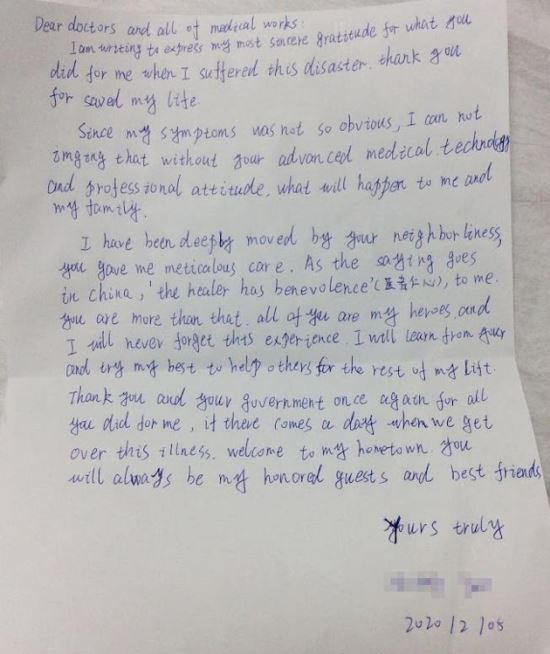 Dear doctors and all of medical works:
I am writing to express my most sincere gratitude for what you
did for me when I suffered this disaster. thank you
for saved my life.
Since my symptoms was not so obvious, I can not
imging that without your advanced medical technology
and professional attitude, what will happen to me and
my family.
I have been deeply moved by your neighborliness,
you gave me meticalous care. As the saying goes
in china, 'the healer has benevolence' (医者仁心), to me.
you are more than that. all of you are my heroes. and
I will never forget this experience. I will learn from your
and try my best to help others for the rest of my lift.
Thank you and your government once again for all
you did for me, if there comes a day when we get
over this illness. welcome to my hometown. you
will always be my honored guests and best friends
Yours truly
2020/2/05